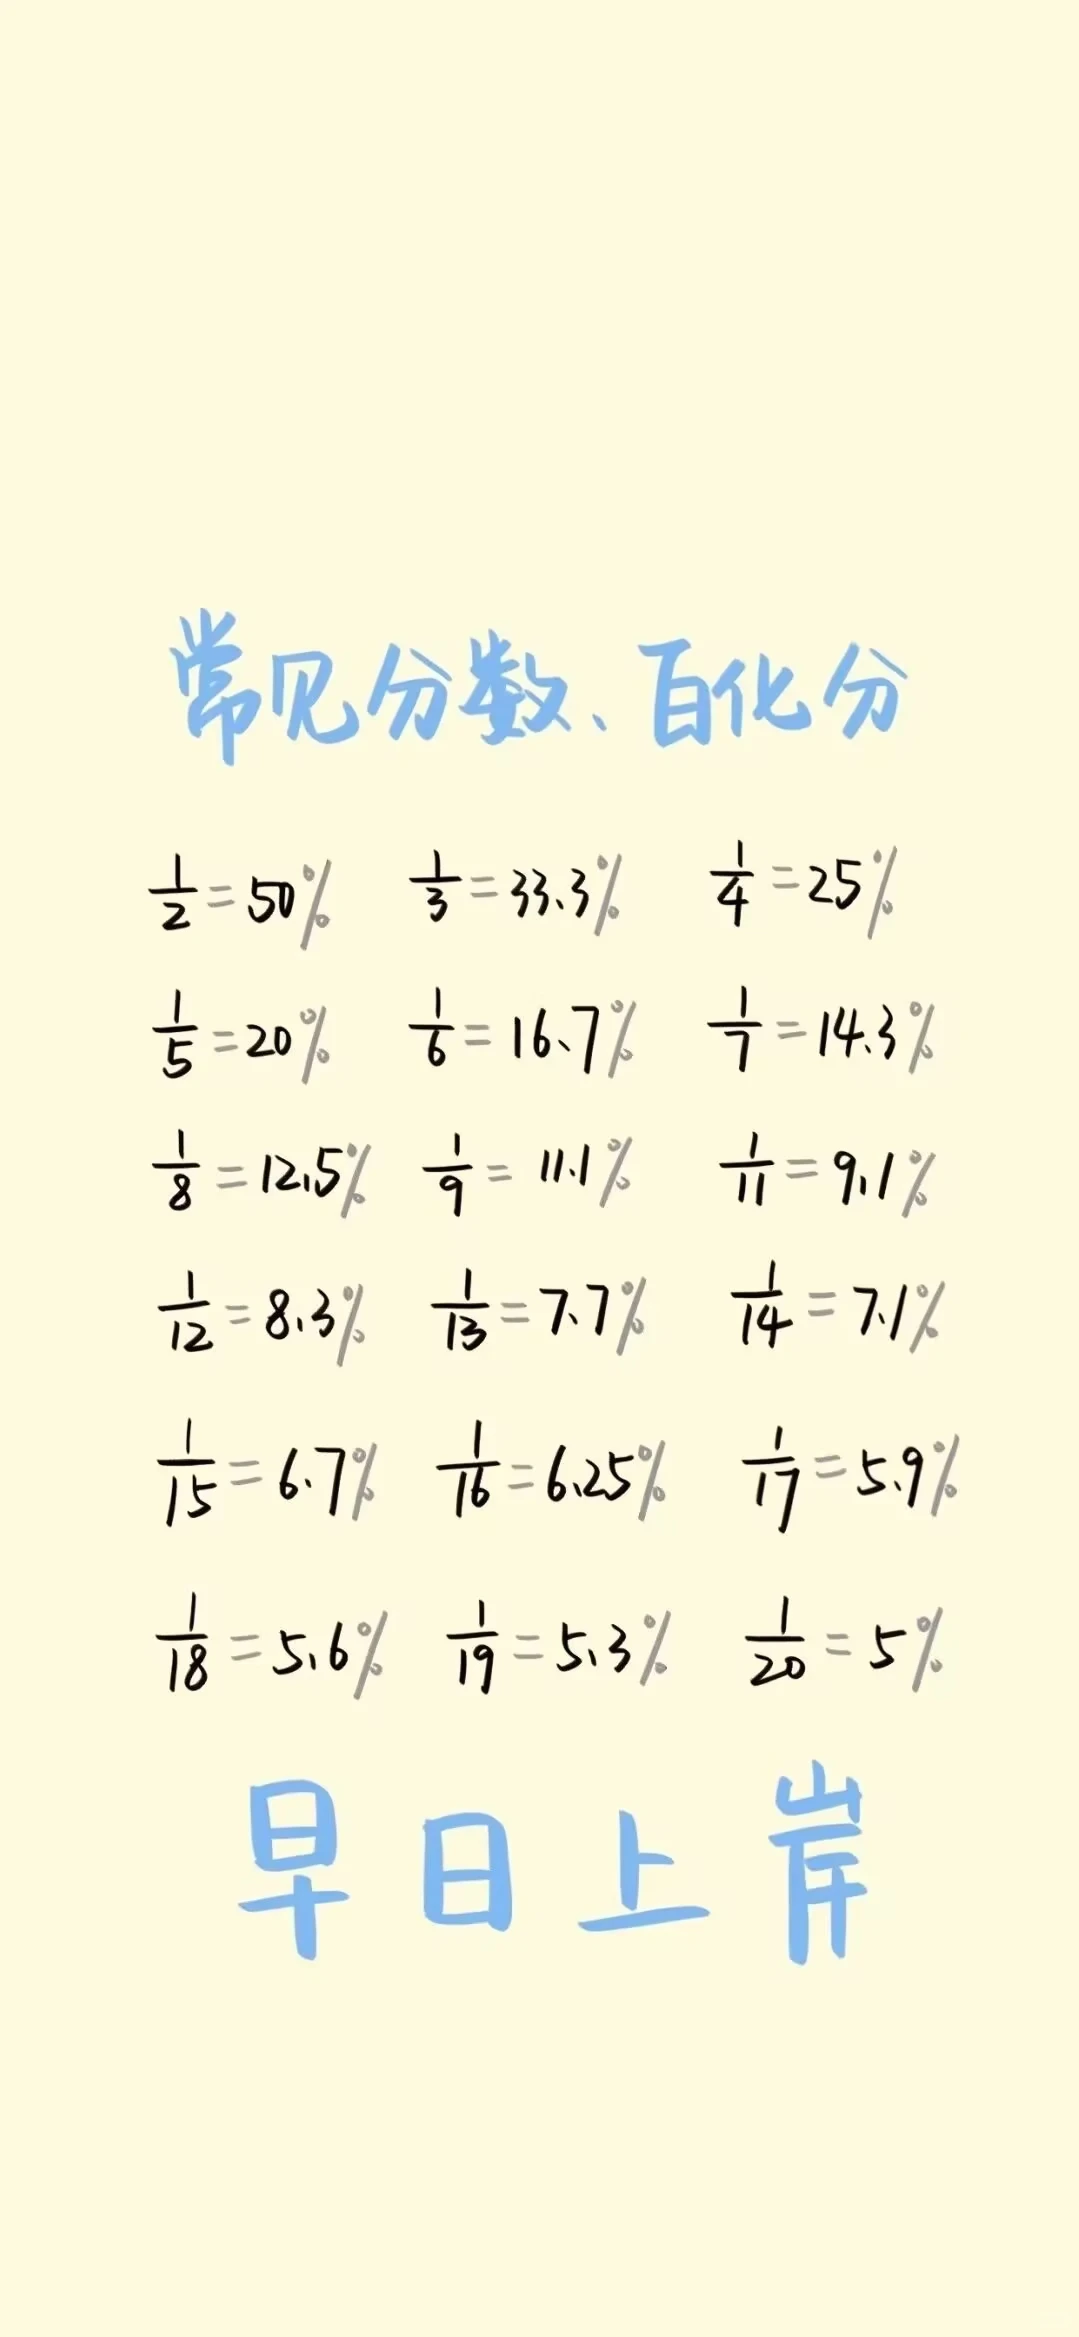 常见分数、百化分
1/2=50% 1/3=33.3% 1/4=25%
1/5=20% 1/6=16.7% 1/7=14.3%
1/8=12.5% 1/9=11.1% 1/11=9.1%
1/12=8.3% 1/13=7.7% 1/14=7.1%
1/15=6.7% 1/16=6.25% 1/17=5.9%
1/18=5.6% 1/19=5.3% 1/20=5%
早日上岸